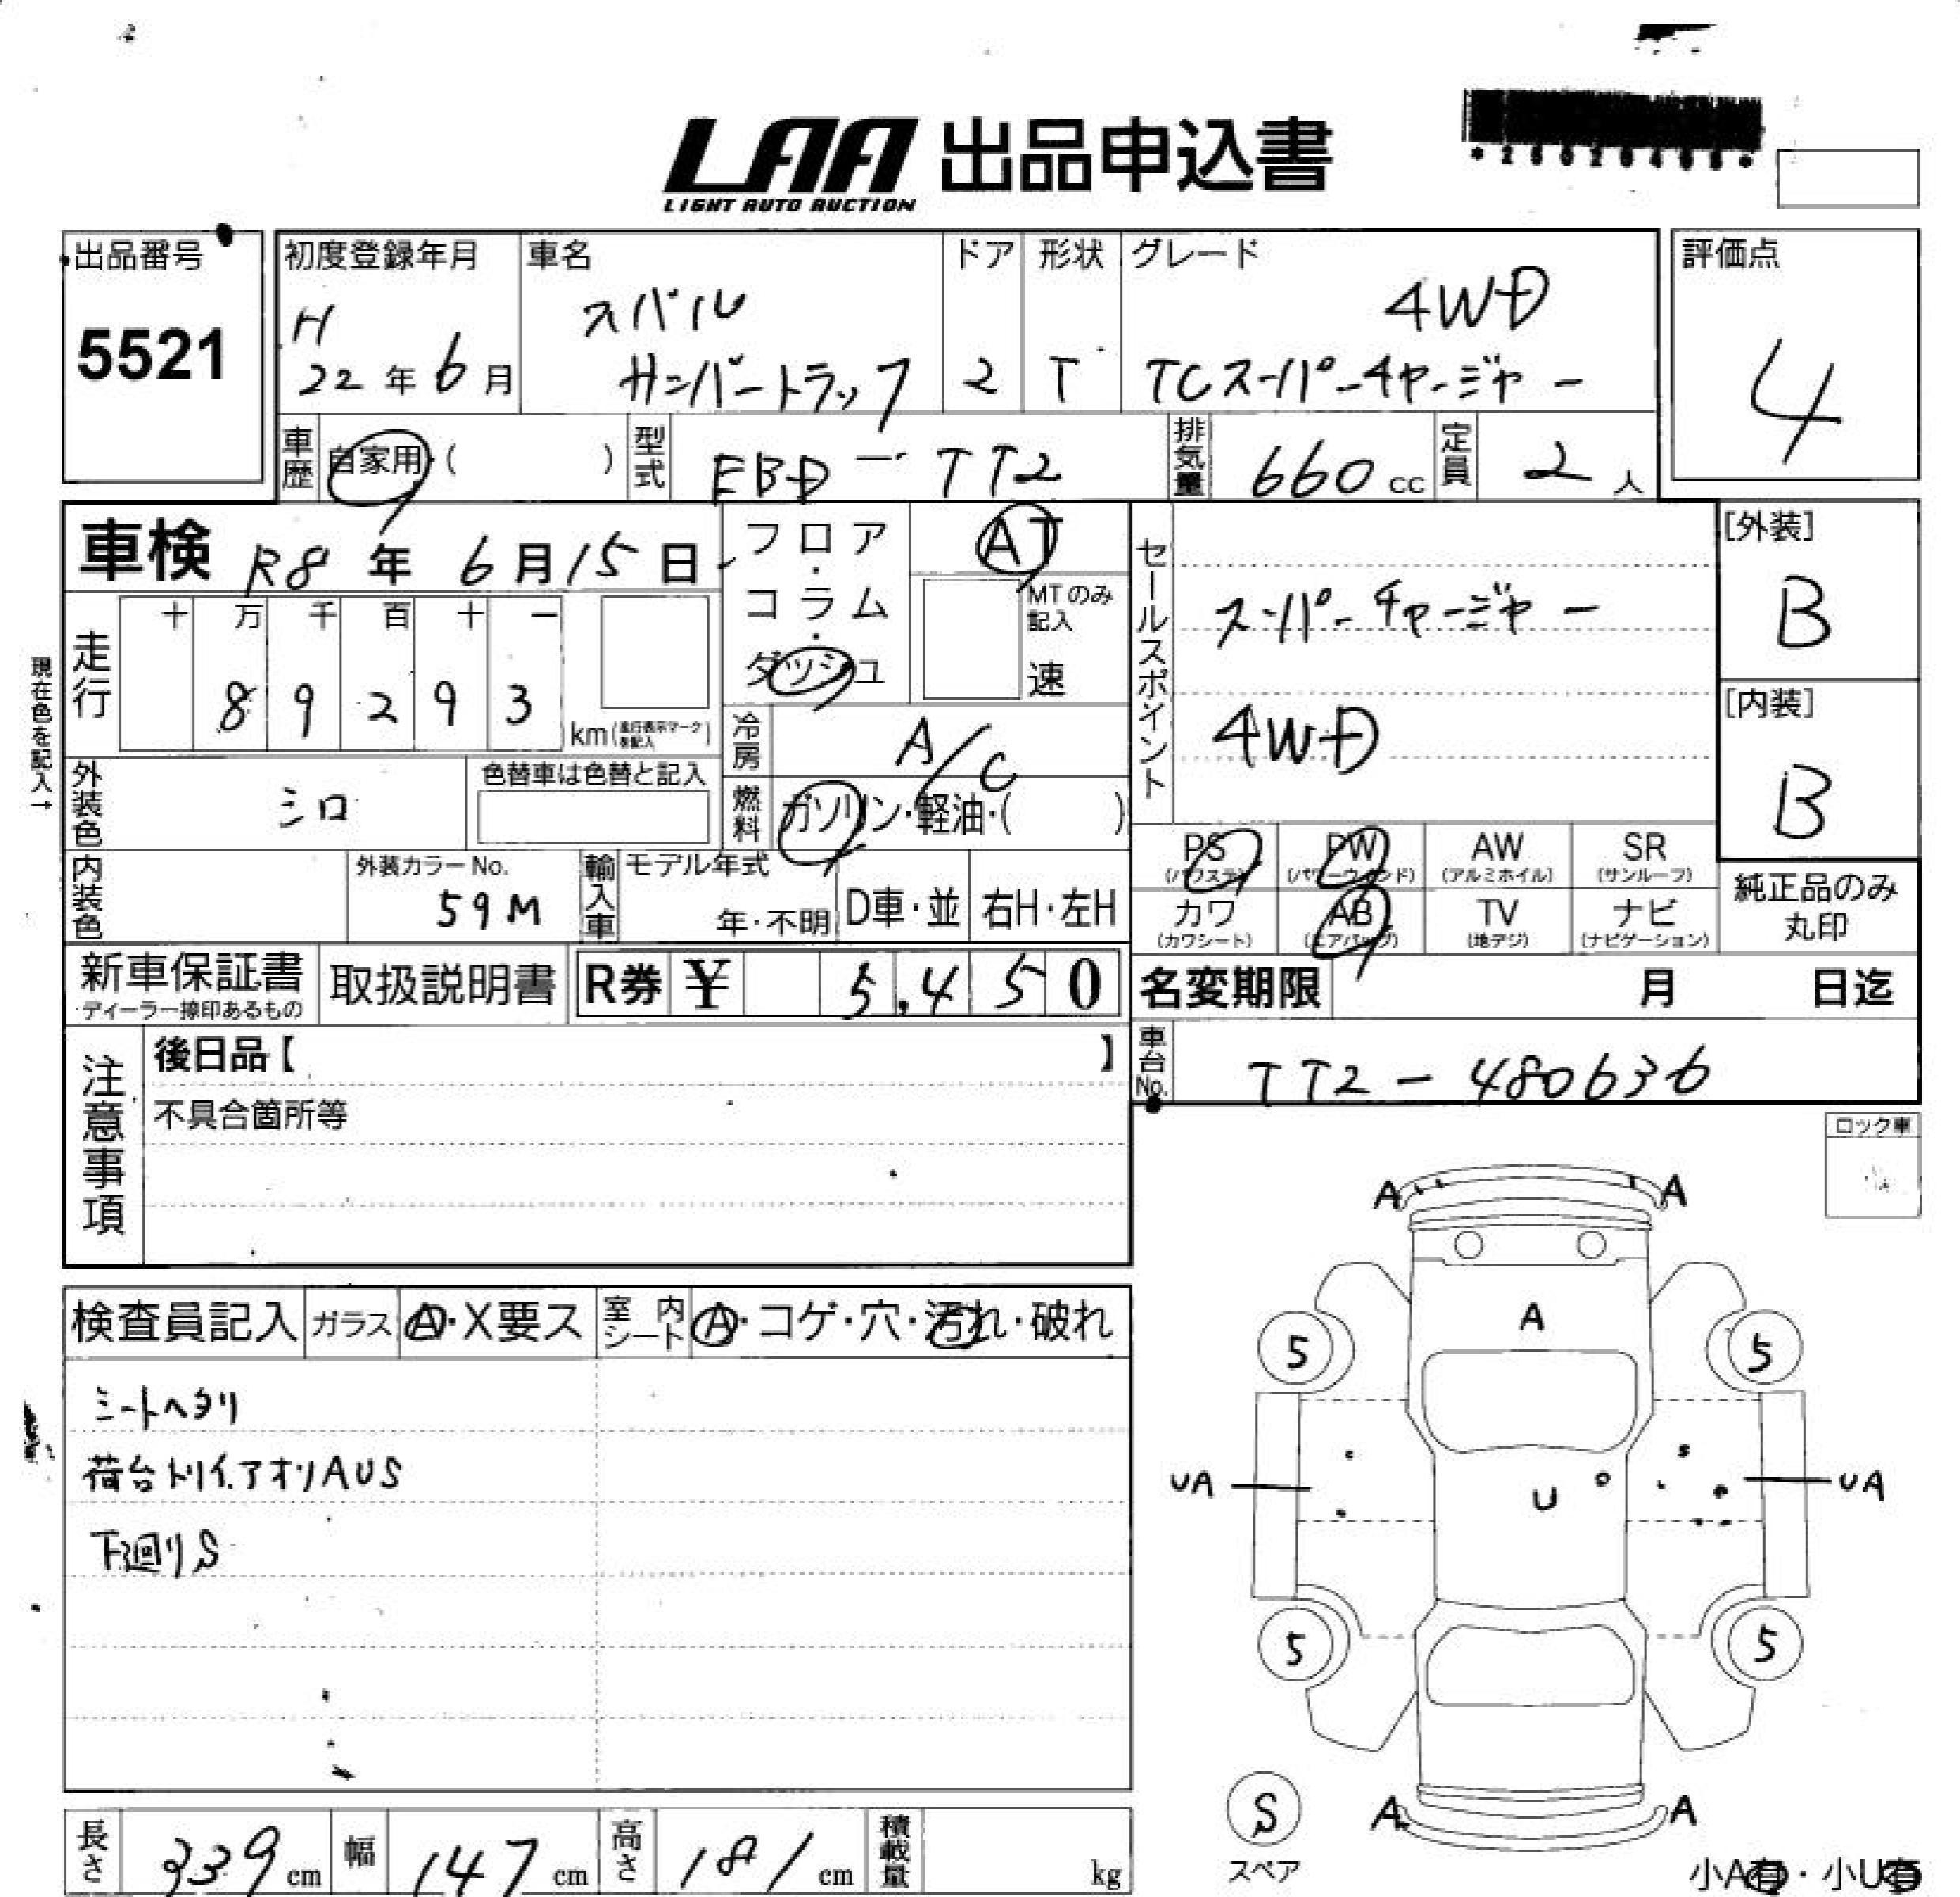 LAA 出品申込書
LIGHT AUTO AUCTION
*25020405*
出品番号
5521
初度登録年月
H
22年6月
車名
スバル
サンバートラック
ドア
2
形状
T
グレード
4WD
TCスーパーチャージャー
評価点
4
車歴
自家用・( )
型式
EBD-TT2
排気量
660cc
定員
2人
車検 R8年6月15日
フロア・コラム・ダッシュ
AT
MTのみ記入
速
セールスポイント
スーパーチャージャー
4WD
[外装]
B
[内装]
B
現在色を記入→
走行
十万千百十一
89293
km(走行表示マークを記入)
冷房
A/C
外装色
シロ
色替車は色替と記入
燃料
ガソリン・軽油・( )
PS
(パワステ)
PW
(パワーウィンド)
AW
(アルミホイル)
SR
(サンルーフ)
カワ
(カワシート)
AB
(エアバッグ)
TV
(地デジ)
ナビ
(ナビゲーション)
純正品のみ
丸印
内装色
外装カラーNo.
59M
輸入車
モデル年式
年・不明
D車・並
右H・左H
新車保証書
・ディーラー捺印あるもの
取扱説明書
R券 ¥ 5,450
名変期限 月 日迄
注意事項
後日品【 】
不具合箇所等
車台No.
TT2-480636
ロック車
検査員記入
ガラス
A・X要ス
室内シート
A・コゲ・穴・汚れ・破れ
シートヘタリ
荷台トリイ.アオリAUS
下廻りS
A A
A
5 5
UA U UA
5 5
A A
S
スペア
小A有・小U有
長さ
339cm
幅
147cm
高さ
181cm
積載量
kg